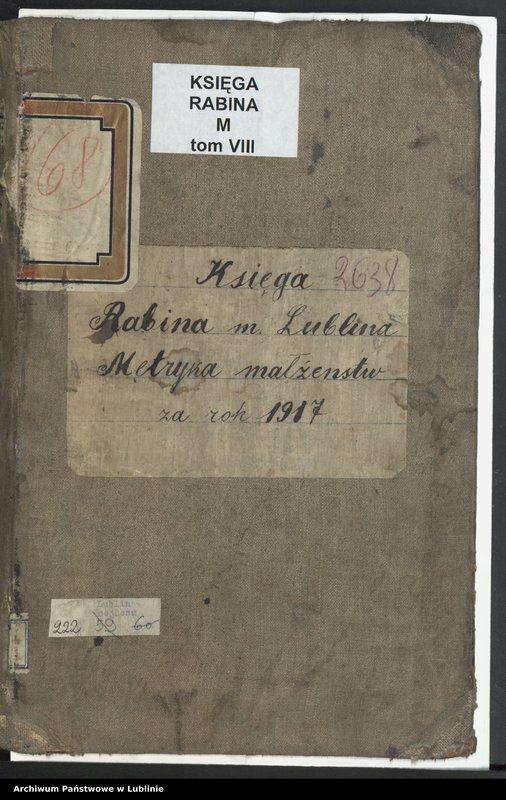 KSIĘGA
RABINA
M
tom VIII
168
Księga 2638
Rabina m. Lublina
Metryka małżenstw
za rok 1917
Lublin
222 59 60
Archiwum Państwowe w Lublinie